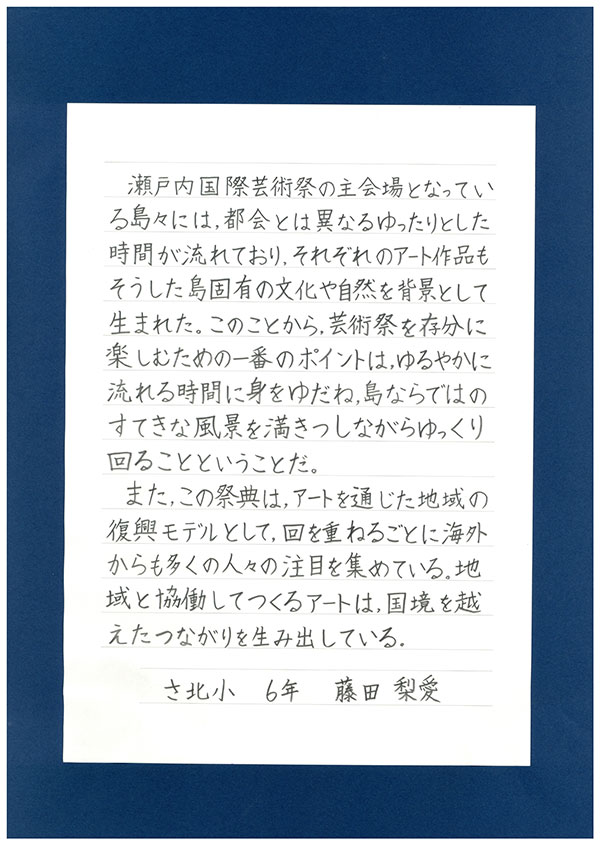 瀬戸内国際芸術祭の主会場となってい
る島々には,都会とは異なるゆったりとした
時間が流れており,それぞれのアート作品も
そうした島固有の文化や自然を背景として
生まれた。このことから,芸術祭を存分に
楽しむための一番のポイントは,ゆるやかに
流れる時間に身をゆだね,島ならではの
すてきな風景を満きつしながらゆっくり
回ることということだ。
また,この祭典は,アートを通じた地域の
復興モデルとして,回を重ねるごとに海外
からも多くの人々の注目を集めている。地
域と協働してつくるアートは,国境を越
えたつながりを生み出している.
さ北小 6年 藤田 梨愛